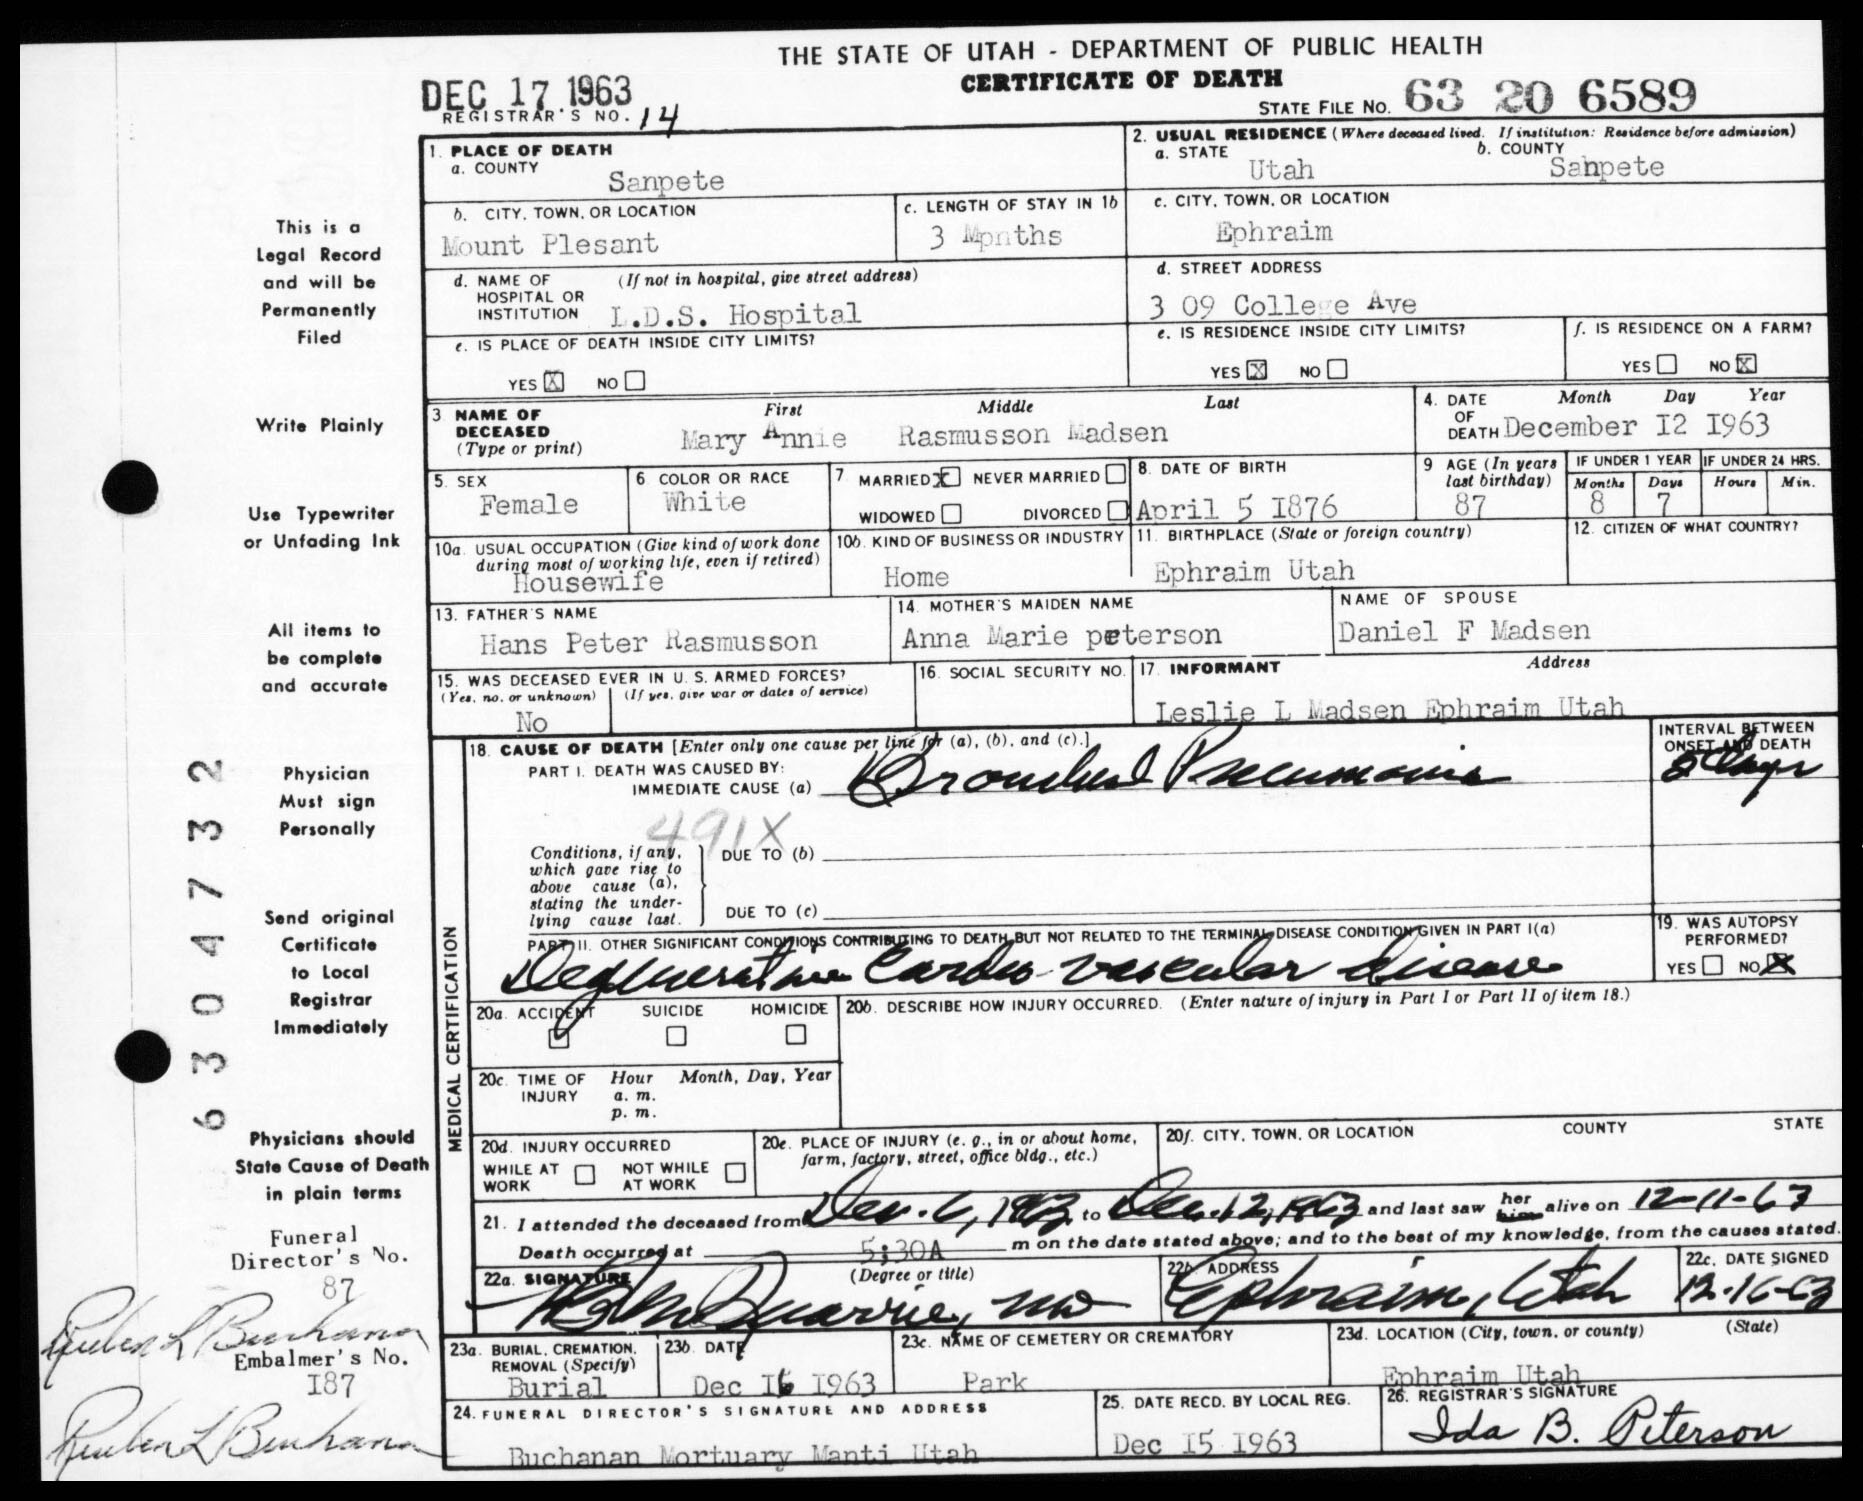 THE STATE OF UTAH - DEPARTMENT OF PUBLIC HEALTH
CERTIFICATE OF DEATH
DEC 17 1963
REGISTRAR'S NO. 14
STATE FILE NO. 63 20 6589
1. PLACE OF DEATH
a. COUNTY
Sanpete
2. USUAL RESIDENCE (Where deceased lived. If institution: Residence before admission)
a. STATE
Utah
b. COUNTY
Sanpete
b. CITY, TOWN, OR LOCATION
Mount Plesant
c. LENGTH OF STAY IN 1b
3 Months
c. CITY, TOWN, OR LOCATION
Ephraim
d. NAME OF HOSPITAL OR INSTITUTION (If not in hospital, give street address)
L.D.S. Hospital
d. STREET ADDRESS
3 09 College Ave
e. IS PLACE OF DEATH INSIDE CITY LIMITS?
YES X NO
e. IS RESIDENCE INSIDE CITY LIMITS?
YES X NO
f. IS RESIDENCE ON A FARM?
YES NO X
3 NAME OF DECEASED (Type or print)
First Middle Last
Mary Annie Rasmusson Madsen
4. DATE OF DEATH
Month Day Year
December I2 I963
5. SEX
Female
6. COLOR OR RACE
White
7 MARRIED X NEVER MARRIED
WIDOWED DIVORCED
8. DATE OF BIRTH
April 5 I876
9 AGE (In years last birthday)
87
IF UNDER 1 YEAR
Months Days
8 7
IF UNDER 24 HRS.
Hours Min.
10a. USUAL OCCUPATION (Give kind of work done during most of working life, even if retired)
Housewife
10b. KIND OF BUSINESS OR INDUSTRY
Home
11. BIRTHPLACE (State or foreign country)
Ephraim Utah
12. CITIZEN OF WHAT COUNTRY?
13. FATHER'S NAME
Hans Peter Rasmusson
14. MOTHER'S MAIDEN NAME
Anna Marie peterson
NAME OF SPOUSE
Daniel F Madsen
15. WAS DECEASED EVER IN U. S. ARMED FORCES?
(Yes, no, or unknown) (If yes, give war or dates of service)
No
16. SOCIAL SECURITY NO.
17. INFORMANT Address
Leslie L Madsen Ephraim Utah
18. CAUSE OF DEATH [Enter only one cause per line for (a), (b), and (c).]
PART I. DEATH WAS CAUSED BY:
IMMEDIATE CAUSE (a) Bronchial Pneumonia
INTERVAL BETWEEN ONSET AND DEATH
days
491X
Conditions, if any, which gave rise to above cause (a), stating the underlying cause last.
DUE TO (b)
DUE TO (c)
PART II. OTHER SIGNIFICANT CONDITIONS CONTRIBUTING TO DEATH BUT NOT RELATED TO THE TERMINAL DISEASE CONDITION GIVEN IN PART I(a)
Degenerative Cardio-vascular disease
19. WAS AUTOPSY PERFORMED?
YES NO X
MEDICAL CERTIFICATION
20a. ACCIDENT SUICIDE HOMICIDE
20b. DESCRIBE HOW INJURY OCCURRED. (Enter nature of injury in Part I or Part II of item 18.)
20c. TIME OF INJURY Hour Month, Day, Year
a. m.
p. m.
20d. INJURY OCCURRED
WHILE AT WORK NOT WHILE AT WORK
20e. PLACE OF INJURY (e. g., in or about home, farm, factory, street, office bldg., etc.)
20f. CITY, TOWN, OR LOCATION COUNTY STATE
21. I attended the deceased from Dec. 6, 1963 to Dec. 12, 1963 and last saw her him alive on 12-11-63
Death occurred at 5:30A m on the date stated above; and to the best of my knowledge, from the causes stated.
22a. SIGNATURE (Degree or title)
22b. ADDRESS
Ephraim, Utah
22c. DATE SIGNED
12-16-63
23a. BURIAL, CREMATION, REMOVAL (Specify)
Burial
23b. DATE
Dec I6 I963
23c. NAME OF CEMETERY OR CREMATORY
Park
23d. LOCATION (City, town, or county) (State)
Ephraim Utah
24. FUNERAL DIRECTOR'S SIGNATURE AND ADDRESS
Buchanan Mortuary Manti Utah
25. DATE RECD. BY LOCAL REG.
Dec I5 I963
26. REGISTRAR'S SIGNATURE
Ida B. Peterson
This is a
Legal Record
and will be
Permanently
Filed
Write Plainly
Use Typewriter
or Unfading Ink
All items to
be complete
and accurate
Physician
Must sign
Personally
Send original
Certificate
to Local
Registrar
Immediately
Physicians should
State Cause of Death
in plain terms
Funeral
Director's No.
87
Reuben L Buchanan
Embalmer's No.
I87
Reuben L Buchanan
63047732